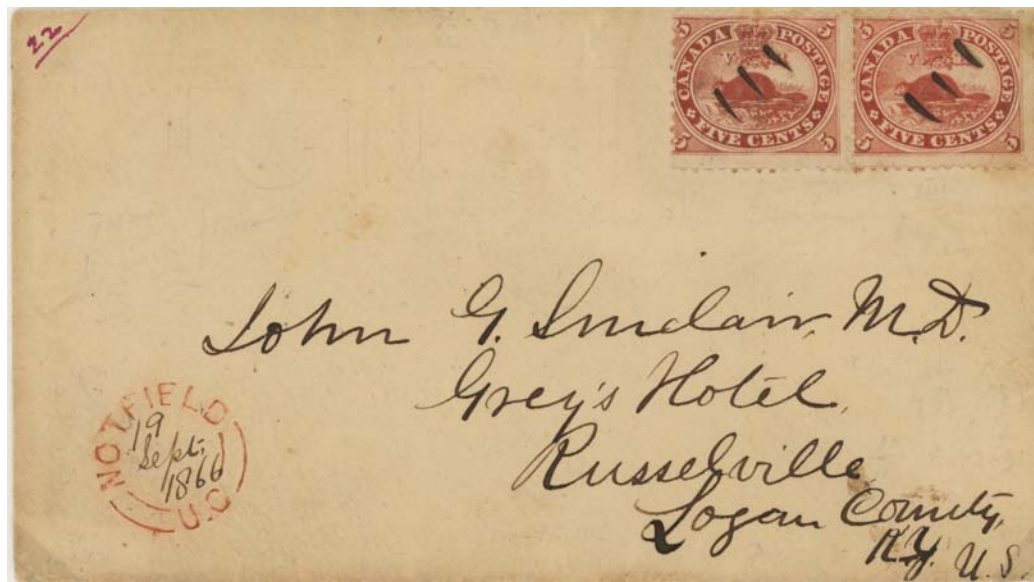 22
CANADA POSTAGE
5 5
FIVE CENTS
5 5
CANADA POSTAGE
5 5
FIVE CENTS
5 5
John G. Sinclair, M.D.
Grey's Hotel,
Russelville
Logan County,
K.Y. U.S.
NOTFIELD
19
Sept,
1866
U.C